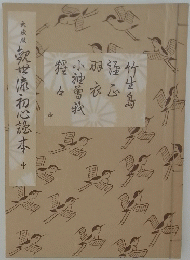 大成版 観世流初心謡本 中
竹生島
経正
羽衣
小袖曽我
猩々